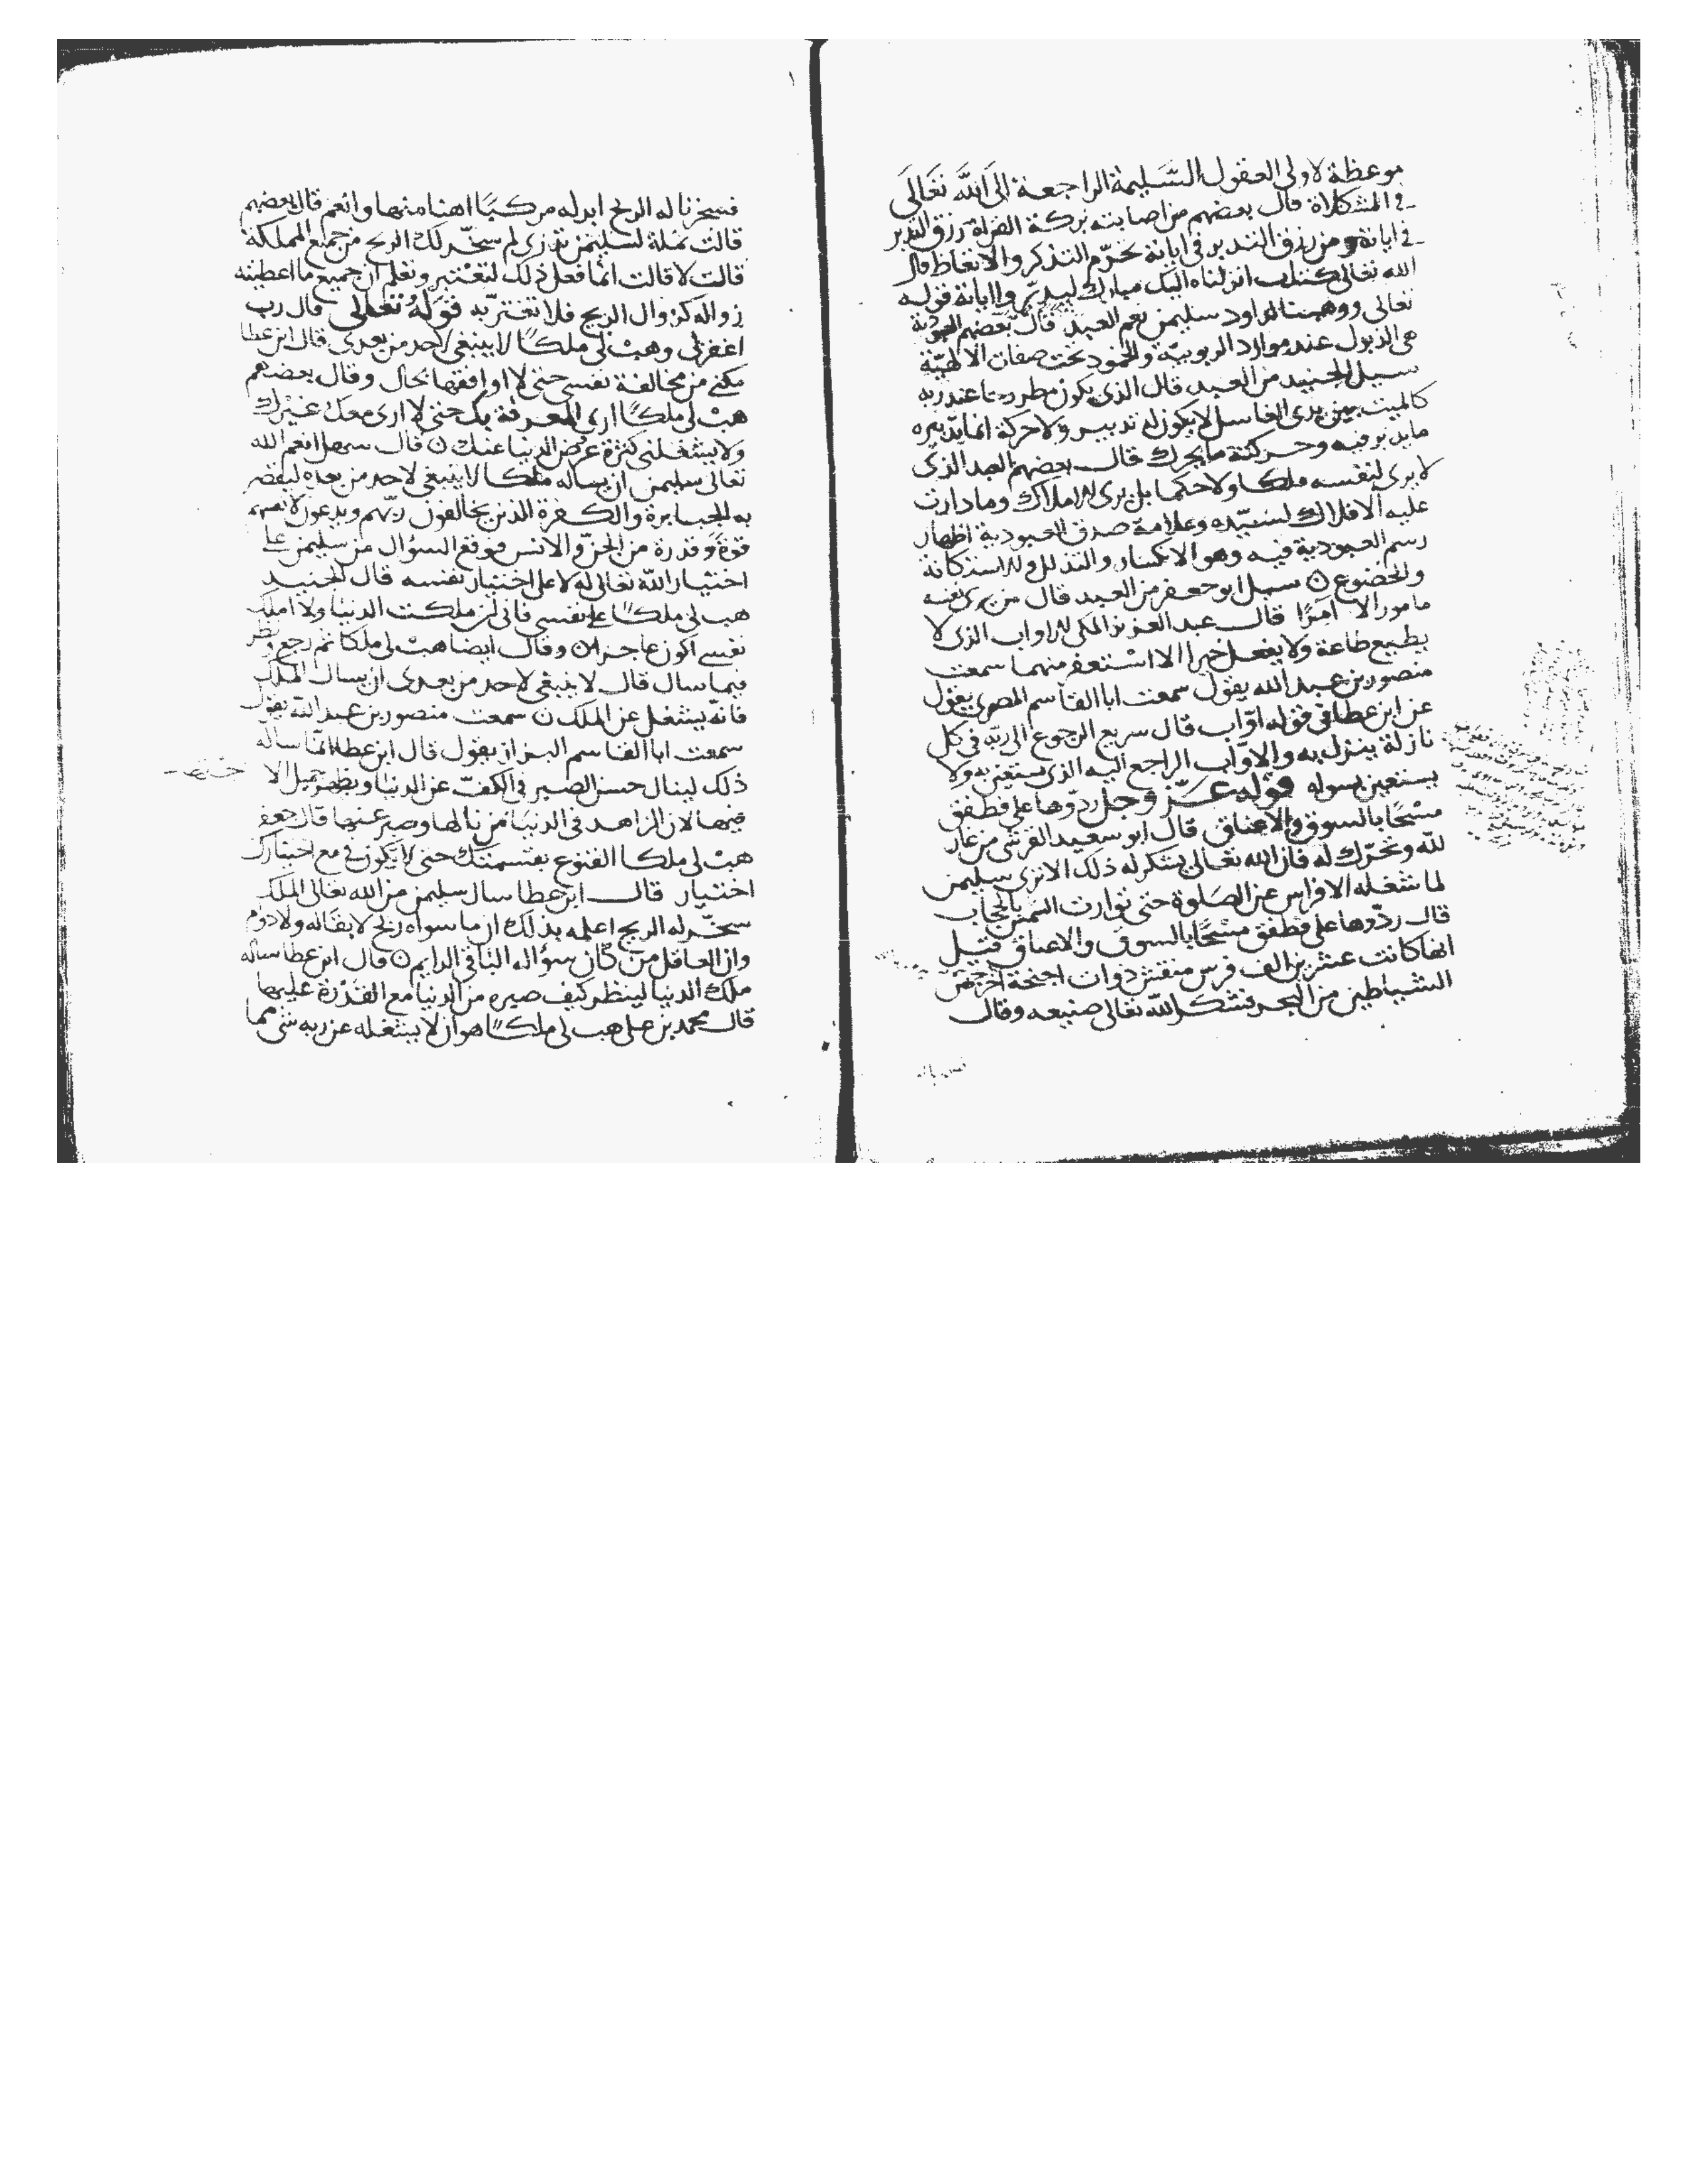 موعظة لاولى العقول السَّليمة الراجعة الى اللّه تَعَالَى
فى المشكلاة قال بعضهم من اصابته بركة القراة رزق التدبر
فى اياته ومن رزق التدبر فى اياته لم يحرّم التذكر والاتعاظ قال
الله تعالى كتاب انزلناه اليك مبارك ليدبّروا اياته قوله
تعالى ووهبنا لداود سليمن نعم العبد قال بعضهم العبودية
هى الذبول عند موارد الربوبيّة والخمود تحت صفات الالهيّة
سيل الجنيد من العبد قال الذى يكون مطروحا عند ربه
كالميت بين يدى الغاسل لا يكون له تدبير ولا حركة انما تدبيره
ما يدبر فيه وحركته ما يحرك قال بعضهم العبد الذى
لا يرى لنفسه ملكا ولا حكما بل يرى الاملاك وما دارت
عليه الافلاك لسَيّده وعلامة صدق العبودية اظهار
رسم العبودية فيه وهو الانكسار والتذلل والاستكانة
والخضوع ن سيل ابو جعفر من العبد قال من يرى نفسه
مامورا لا امرًا قال عبد العزيز المكى الاواب الذى لا
يطيع طاعة ولا يفعل خيرا الا استغفر منهما سمعت
منصور بن عبد الله يقول سمعت ابا القاسم المصرى يقول
عن ابن عطا فى قوله اوّاب قال سريع الرجوع الى ربّه فى كل
نازلة ينزل به والاوّاب الراجع اليه الذى يستغنى به ولا
يستعين بسواه قوله عَزّ وجل ردّوها على فطفق
مسْحًا بالسوق والاعناق قال ابو سعيد القرشى من غار
للّه وتحرّك له فان الله تعالى يشكر له ذلك الا ترى سليمن
لما شغله الافراس عن الصَلوة حتى توارت الشمس بالحجاب
قال ردّوها على فطفق مسْحًا بالسوق والاعناق قيل
انها كانت عشرين الف فرس منقش ذوات اجنحة اخرجتهن
الشياطين من البحر فشكر اللّه تعالى صنيعه وقال
فسخرنا له الريح ابدله مركبًا اهنا منها وانعم قال بعضهم
قالت نملة لسليمن تدرى لم سخّر لك الريح من جميع المملكة
قالت لا قالت انما فعل ذلك لتعْتبر وتعلم ان جميع ما اعطيته
زواله كزوال الريح فلا تغترّ به قولهُ تعالى قال رب
اغفرلى وهبْ لى ملكًا لا ينبغى لاحد من بعدى قال ابن عطا
مكنى من مخالفة نفسى حتى لا اوافقها بحال وقال بعضهم
هبْ لى ملكًا ارى المعرفة بك حتى لا ارى معك غيْرك
ولا يشغلنى كثرة عَرض الدنيا عنك ن قال سهل انعم الله
تعالى سليمن ان يساله ملكا لا ينبغى لاحد من بعده ليقصر
به الجبابرة والكفرة الذين يخالفون ربّهم ويدعون لانفسهم
قوّة وقدرة من الجنّ والانس فوقع السؤال من سليمن على
اختيار اللّه تعالى له لا على اختيار نفسه قال الجنيد
هب لى ملكًا على نفسى فانى لئن ملكت الدنيا ولا املك
نفسى اكون عاجزا ن وقال ايضا هبْ لى ملكا ثم رجع ونظر
فيما سال قال لا ينبغى لاحد من بعدى ان يسال الملك
فانّه يشغل عن الملك ن سمعت منصور بن عبد اللّه يقول
سمعت ابا القاسم البزاز يقول قال ابن عطا انّما ساله
ذلك لينال حسن الصبر فى الكفّ عن الدنيا ويظهر جميل الا
فيها لان الزاهد فى الدنيا من نالها وصبر عنها قال جعفر
هبْ لى ملكا القنوع بقسمتك حتى لا يكون لى مع اختيارك
اختيار قال ابن عطا سال سليمن من الله تعالى الملك
سخّر له الريح اعلمه بذلك ان ما سواه ريح لا بقاله ولا دوام
وان العاقل من كان سؤاله الباقى الدايم ن قال ابن عطا ساله
ملك الدنيا لينظر كيف صبره من الدنيا مع القدْرة عليها
قال محمد بن على هب لى ملكًا هو ان لا يشغله عن ربه شى مما